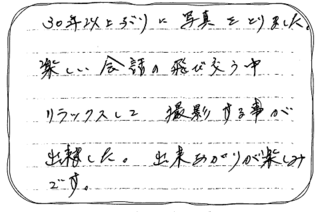 30年以上ぶりに写真をとりました。
楽しい会話の飛び交う中
リラックスして撮影する事が
出来ました。出来あがりが楽しみ
です。